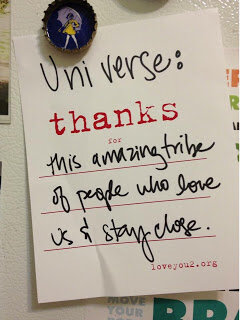 Universe:
thanks
for
this amazing tribe
of people who love
us & stay close.
loveyou2.org
MOVE
YOUR
BRA